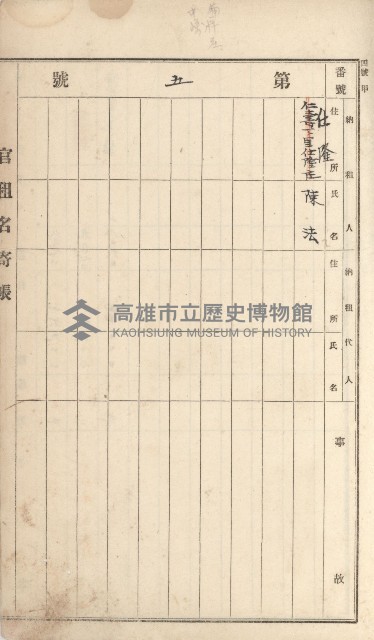 四號甲
番號
第五號
納租人
住所
氏名
仕隆
仁壽上里仕隆庄
陳法
納租代人
住所
氏名
事故
官租名寄帳
高雄市立歷史博物館
KAOHSIUNG MUSEUM OF HISTORY